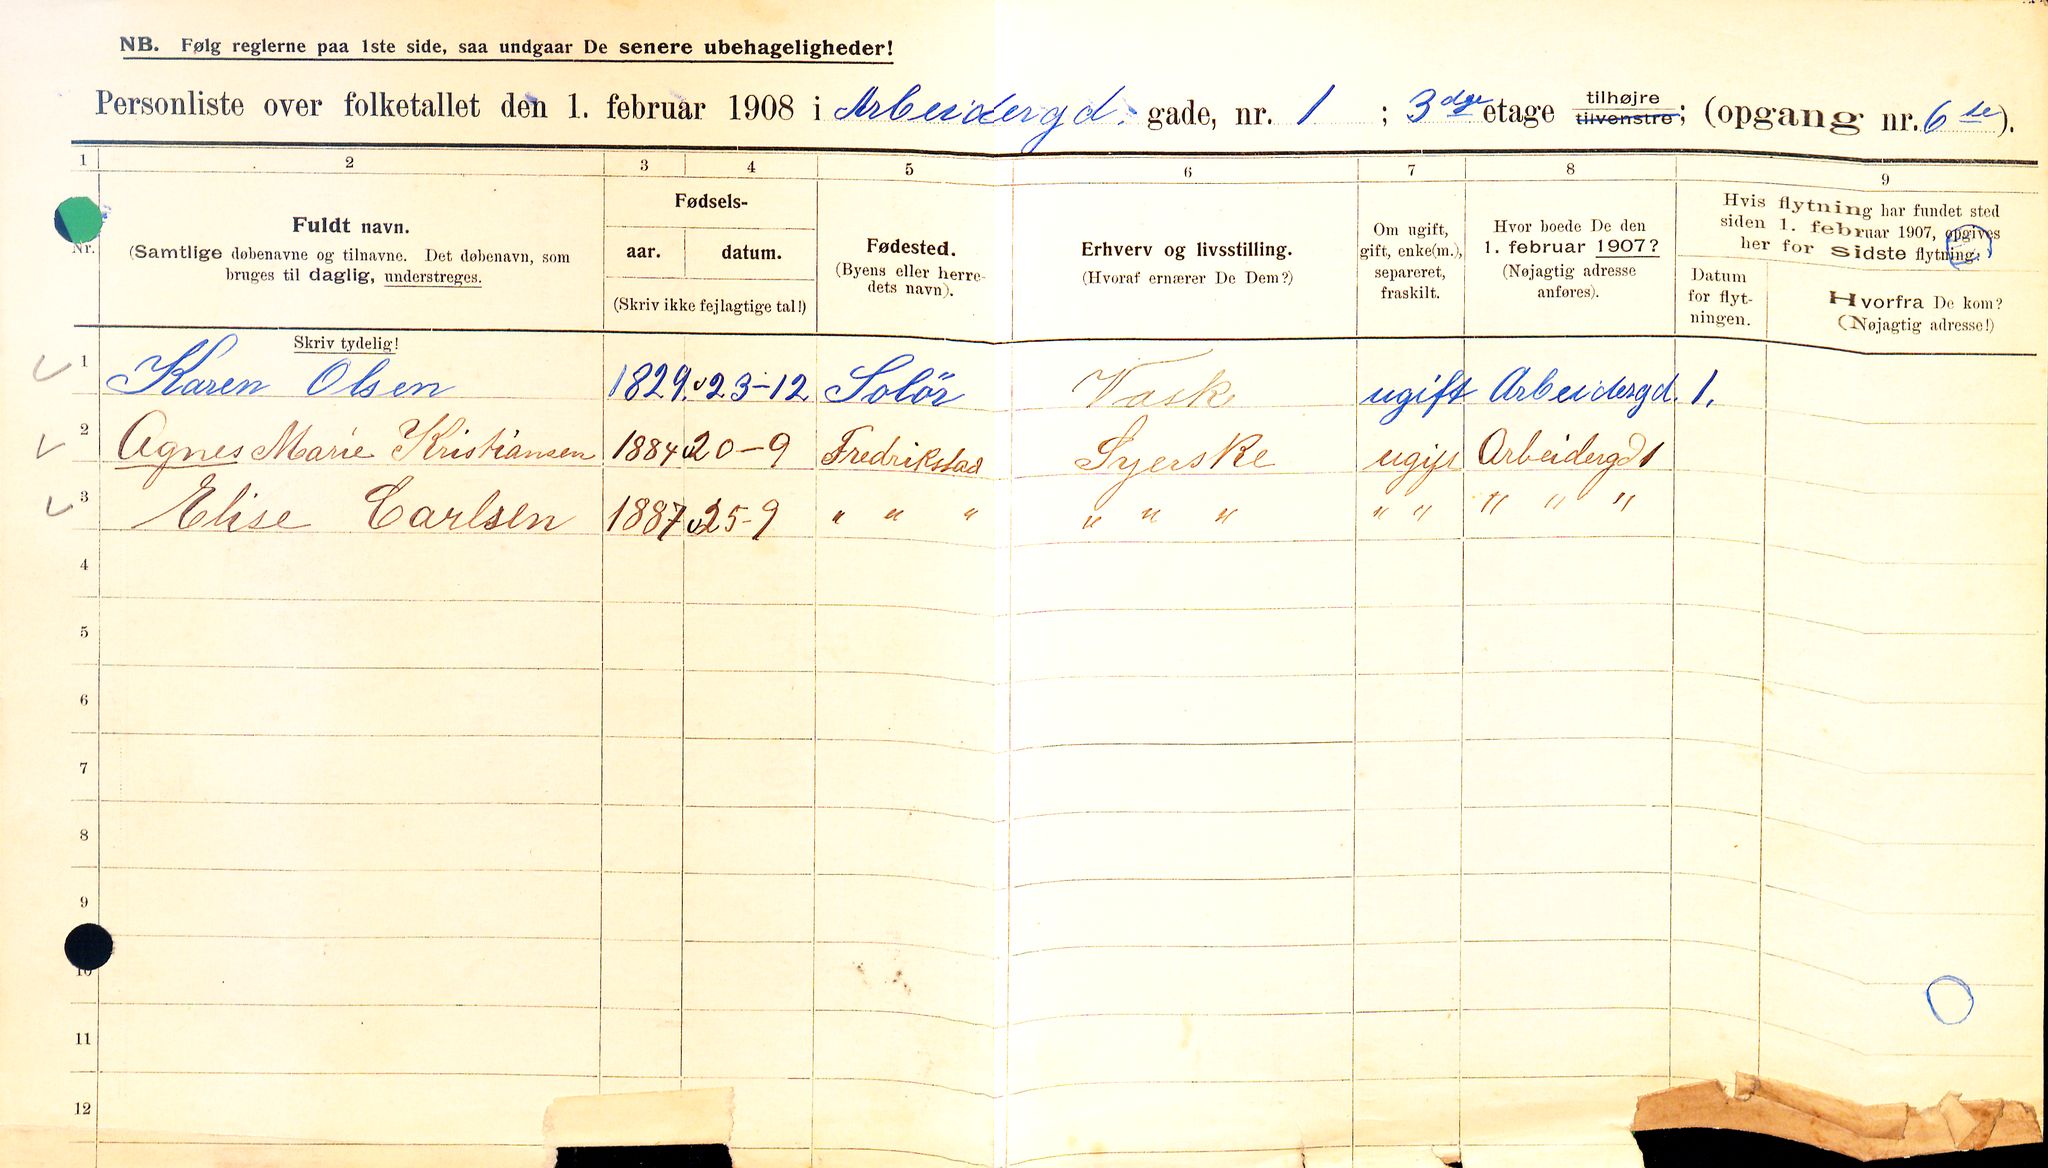 NB. Følg reglerne paa 1ste side, saa undgaar De senere ubehageligheder!
Personliste over folketallet den 1. februar 1908 i Arbeidergd. gade, nr. 1 ; 3dge etage tilhøjre tilvenstre; (opgang nr. 6te).
1 2 3 4 5 6 7 8 9
Nr.
Fuldt navn.
(Samtlige døbenavne og tilnavne. Det døbenavn, som
bruges til daglig, understreges.
Skriv tydelig!
Fødsels-
aar. datum.
(Skriv ikke fejlagtige tal!)
Fødested.
(Byens eller herre-
dets navn).
Erhverv og livsstilling.
(Hvoraf ernærer De Dem?)
Om ugift,
gift, enke(m.),
separeret,
fraskilt.
Hvor boede De den
1. februar 1907?
(Nøjagtig adresse
anføres).
Hvis flytning har fundet sted
siden 1. februar 1907, opgives
her for sidste flytning:
Datum
for flyt-
ningen.
Hvorfra De kom?
(Nøjagtig adresse!)
1 Karen Olsen 1829. 23-12 Solör Vask ugift Arbeidergd. 1.
2 Agnes Marie Kristiansen 1884 20-9 Fredrikstad Syerske ugift Arbeidergd 1
3 Elise Carlsen 1887 25-9 " " " " " " " " " " "
4
5
6
7
8
9
10
11
12